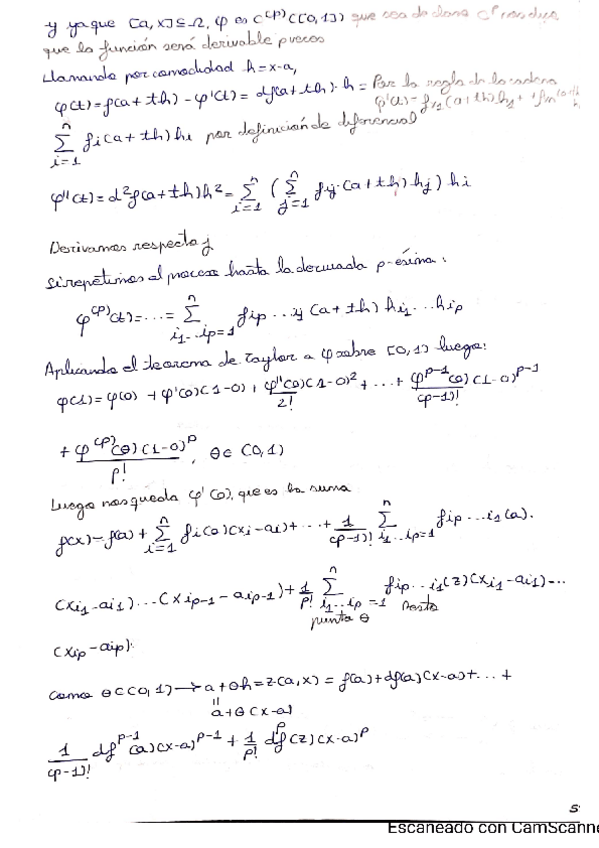 y ya que [a,x]⊆Ω, φ es C^(p)([0,1]) que sea de clase C^p
que la función será derivable p veces
Llamando por comodidad h=x-a,
φ(t)=f(a+th) - φ'(t)= df(a+th)·h = Por la regla de la cadena
φ'(t)= f_x1(a+th)h_1+
∑_{i=1}^n f_i(a+th)h_i por definición de diferencial
φ''(t)=d²f(a+th)h²= ∑_{i=1}^n (∑_{j=1}^n f_ij(a+th)h_j)h_i
Derivamos respecto j
Si repetimos el proceso hasta la derivada p-ésima:
φ^(p)(t)=...= ∑_{i_1...i_p=1}^n f_ip...ij (a+th)h_i1...h_ip
Aplicando el teorema de Taylor a φ sobre [0,1] luego:
φ(1)=φ(0)+φ'(0)(1-0)+ φ''(0)(1-0)²/2! +...+ φ^{p-1}(0)(1-0)^{p-1}/(p-1)!
+ φ^(p)(θ)(1-0)^p/p! , θ∈(0,1)
Luego nos queda φ'(0), que es la suma
f(x)=f(a)+ ∑_{i=1}^n f_i(a)(x_i-a_i)+...+ 1/(p-1)! ∑_{i_1...i_p=1}^n f_ip...i_1(a).
(x_i1-a_i1)...(x_ip-1-a_ip-1)+ 1/p! ∑_{i_1...i_p=1}^n f_ip...i_1(z)(x_i1-a_i1)...
punto θ Resto
(x_ip-a_ip).
como θ∈(0,1)→a+θh=z∈(a,x) = f(a)+df(a)(x-a)+...+
=
a+θ(x-a)
1/(p-1)! df^{p-1}(a)(x-a)^{p-1} + 1/p! df^p(z)(x-a)^p
5
Escaneado con CamScanne